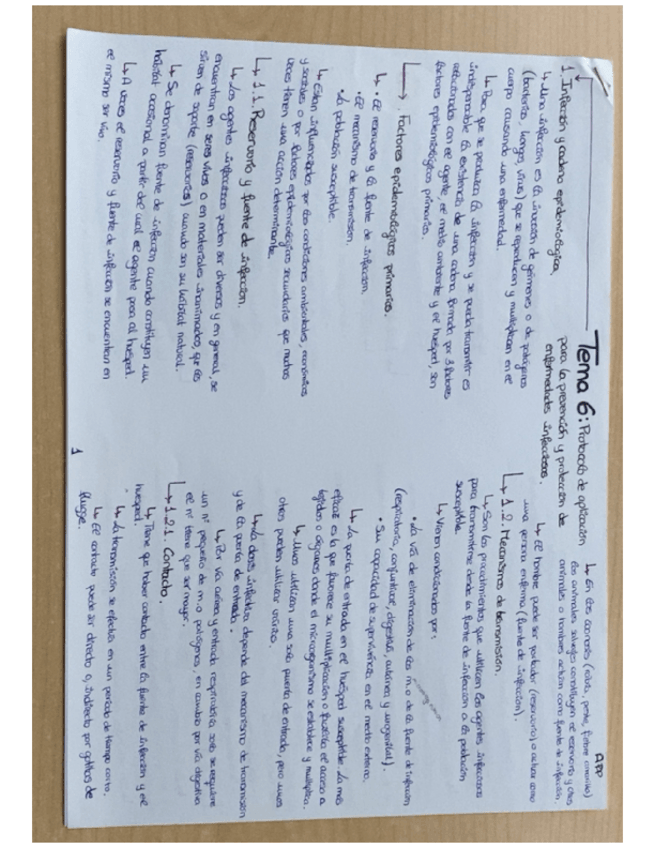 APP
Tema 6: Protocolo de aplicación
para la prevención y protección de
enfermedades infecciosas.
1. Infección y cadena epidemiológica.
↳ Una infección es la invasión de gérmenes o de patógenos
(bacterias, hongos, virus) que se reproducen y multiplican en el
cuerpo causando una enfermedad.
↳ Para que se produzca la infección y se pueda transmitir es
indispensable la existencia de una cadena formada por 3 factores
relacionados con el agente, el medio ambiente y el huésped, son
factores epidemiológicos primarios.
↳ Factores epidemiológicos primarios.
↳ • El reservorio y la fuente de infección.
• El mecanismo de transmisión.
• La población susceptible.
↳ Están influenciados por las condiciones ambientales, económicas
y sociales o por factores epidemiológicos secundarios que muchas
veces tienen una acción determinante.
↳ 1.1. Reservorio y fuente de infección.
↳ Los agentes infecciosos pueden ser diversos y en general, se
encuentran en seres vivos o en materiales inanimados, que les
sirven de soporte (reservorios) cuando son su hábitat natural.
↳ Se denominan fuente de infección cuando constituyen un
hábitat ocasional a partir del cual el agente pasa al huésped.
↳ A veces el reservorio y fuente de infección se encuentran en
el mismo ser vivo.
↳ En las zoonosis (rabia, peste, fiebre amarilla)
los animales salvajes constituyen el reservorio y otros
animales o hombres actúan como fuente de infección.
↳ El hombre puede ser portador (reservorio) o actuar como
una persona enferma (fuente de infección).
↳ 1.2. Mecanismo de transmisión.
↳ Son los procedimientos que utilizan los agentes infecciosos
para transmitirse desde la fuente de infección a la población
susceptible.
↳ Vienen condicionados por:
• La vía de eliminación de los m.o de la fuente de infección
(respiratoria, conjuntival, digestiva, cutánea y urogenital).
• Su capacidad de supervivencia en el medio externo.
↳ La puerta de entrada en el huésped susceptible. La más
eficaz es la que favorece su multiplicación o facilita el acceso a
tejidos o órganos donde el microorganismo se establece y multiplica.
↳ Unos utilizan una sola puerta de entrada, pero unos
otros pueden utilizar varias.
↳ La dosis infectiva depende del mecanismo de transmisión
y de la puerta de entrada.
↳ Por vía aérea y entrada respiratoria solo se requiere
un nº pequeño de m.o patógenos, en cambio por vía digestiva
el nº tiene que ser mayor.
↳ 1.2.1. Contacto.
↳ Tiene que haber contacto entre la fuente de infección y el
huésped.
↳ La transmisión se efectúa en un período de tiempo corto.
↳ El contacto puede ser directo o, indirecto por gotitas de
flugge.
1